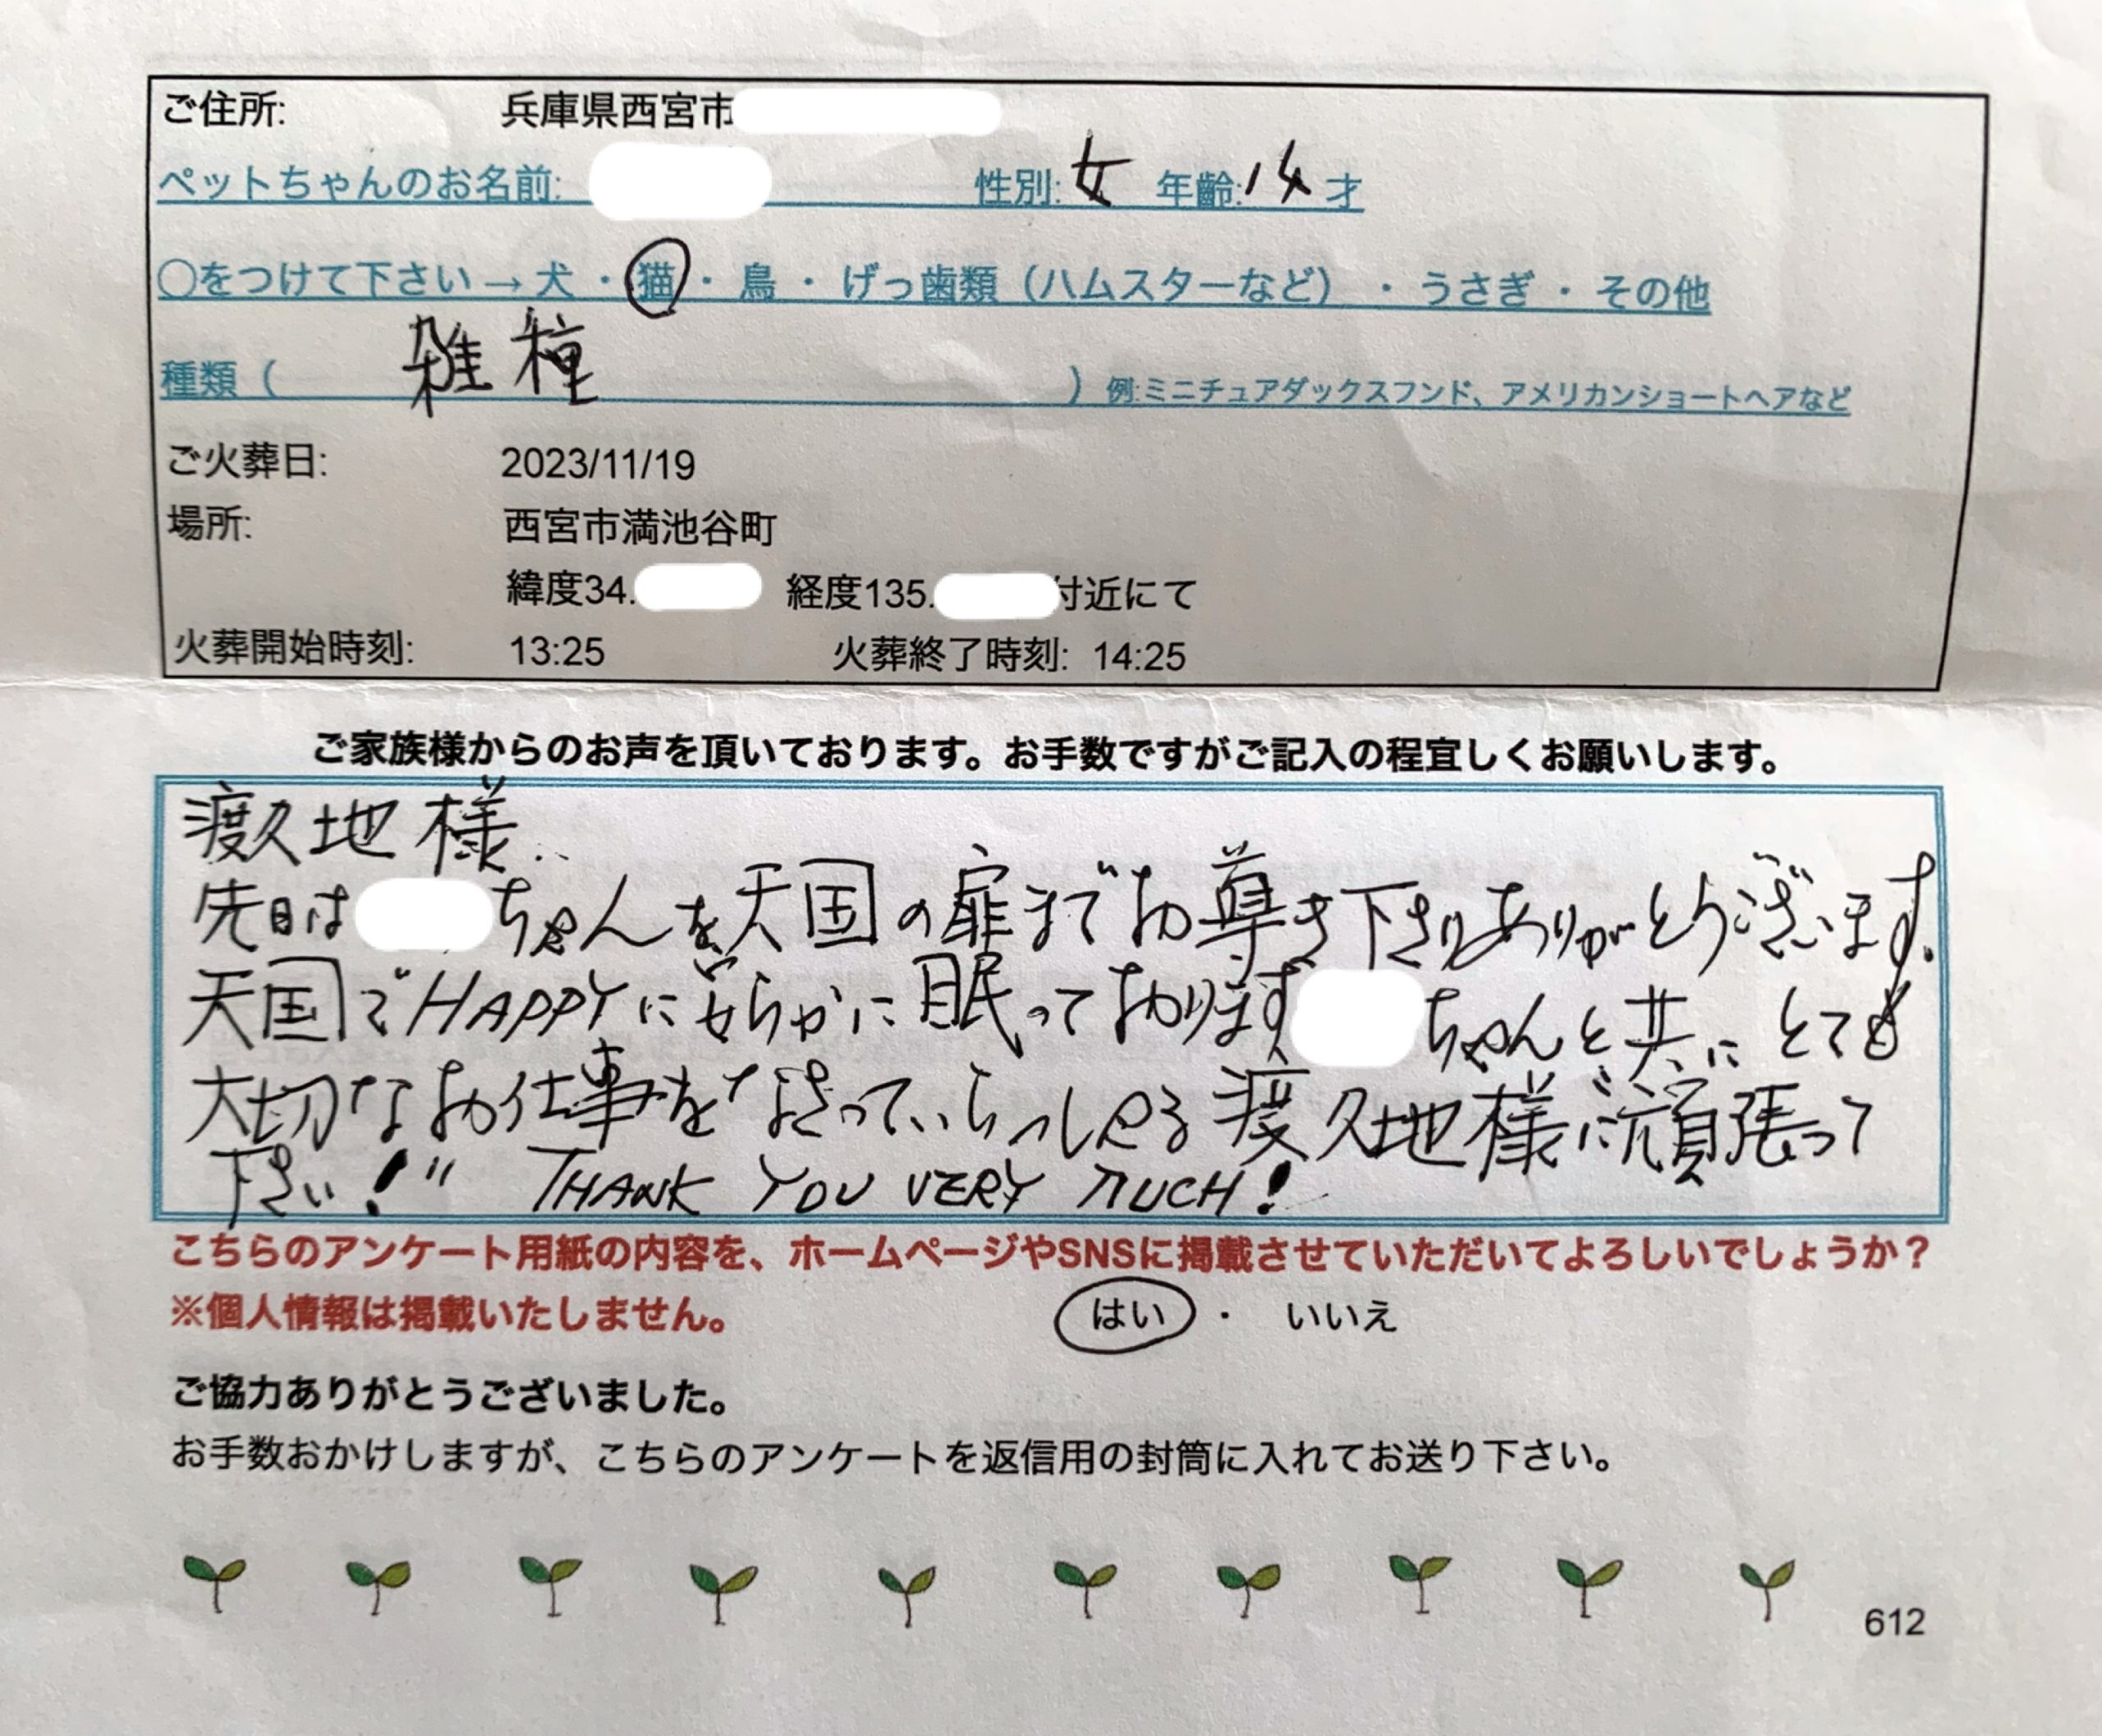 ご住所: 兵庫県西宮市
ペットちゃんのお名前: 性別:女 年齢:14才
〇をつけて下さい→犬・猫・鳥・げっ歯類（ハムスターなど）・うさぎ・その他
種類（ 雑種 ）例:ミニチュアダックスフンド、アメリカンショートヘアなど
ご火葬日: 2023/11/19
場所: 西宮市満池谷町
緯度34. 経度135. 付近にて
火葬開始時刻: 13:25 火葬終了時刻: 14:25
ご家族様からのお声を頂いております。お手数ですがご記入の程宜しくお願いします。
渡久地様
先日は ちゃんを天国の扉までお導き下さりありがとうございます。
天国でHAPPYに安らかに眠っております ちゃんと共にとても
大切なお仕事をなさっていらっしゃる渡久地様に頑張って
下さい!" THANK YOU VERY MUCH!
こちらのアンケート用紙の内容を、ホームページやSNSに掲載させていただいてよろしいでしょうか？
※個人情報は掲載いたしません。 はい ・ いいえ
ご協力ありがとうございました。
お手数おかけしますが、こちらのアンケートを返信用の封筒に入れてお送り下さい。
612